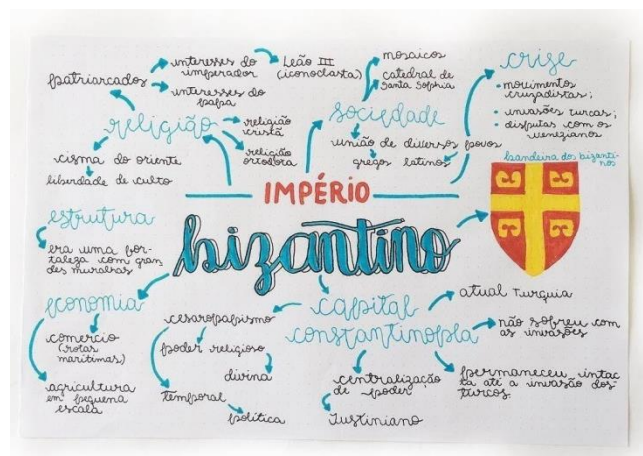 patriarcados
interesses do
imperador
interesses do
papa
Leão III
(iconoclasta)
religião
religião
cristã
religião
ortodoxa
cisma do oriente
liberdade de culto
mosaicos
catedral de
Santa Sophia
sociedade
união de diversos povos
gregos
latinos
crise
• movimentos
cruzadistas;
• invasões turcas;
• disputas com os
venezianos
bandeira dos bizanti-
nos
IMPÉRIO
bizantino
estrutura
era uma for-
taleza com gran
des muralhas
economia
comercio
(rotas
marítimas)
agricultura
em pequena
escala
cesaropapismo
poder religioso
divina
temporal
política
capital
constantinopla
atual Turquia
não sofreu com
as invasões
permaneceu intac
ta até a invasão dos
turcos.
centralização
de poder
Justiniano